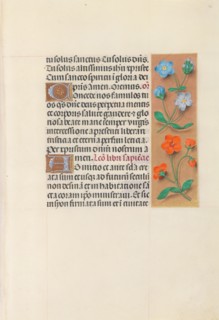 tu solus sanctus. Tu solus dñs.
Tu solus altissimus ihu xpriste
Cum sancto spiritu in gloria dei
pris Amen. Oremus. or̃
Concede nos famulos tu
os q̃s dñe deus perpetua mentis
et corporis salute gaudere: et glo
riosa beate marie semper virginis
intercessione a presenti liberari
tristicia et eterna perfrui leticia.
Per xpristum dñm nostrum a
men. Leo libri sapiẽcie
Ab inicio et ante sc̃la cre
ata sum et usq; ad futurũ seculũ
non desinã et in habitatione sã
cta coram ip̃o ministraui. Et sic
in syon firmata sum et ĩ ciuitate